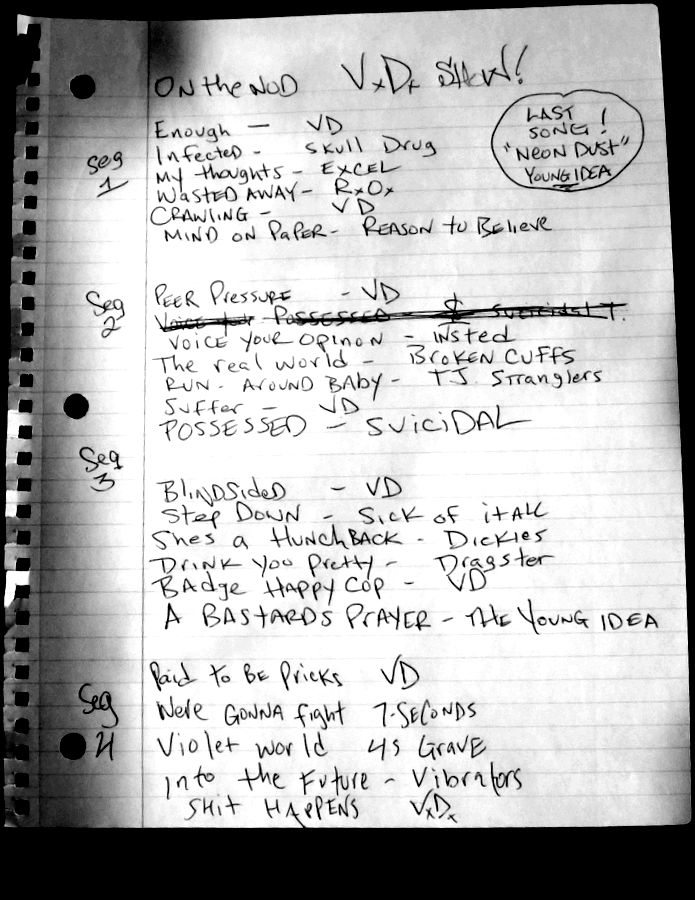 ON the NOD VxDx SHOW!
LAST
SONG!
"NEON DUST"
YOUNG IDEA
Seg
1
Enough - VD
Infected - Skull Drug
My thoughts - EXCEL
WASTED AWAY - RxOx
CRAWLING - VD
MIND ON PAPER - REASON to Believe
Seg
2
PEER PRESSURE - VD
Voice for POSSESSED - $ Suicidal T.
VOICE YOUR OPINON - iNSted
The real world - BROKEN CUFFS
RUN-AROUND BABY - T.J. Stranglers
Suffer - VD
POSSESSED - SUiCiDAL
Seg
3
BLINDSIDED - VD
Step DOWN - Sick of it ALL
Shes a HUNCHBACK - Dickies
Drink You Pretty - Dragster
BAdge HAPPY COP - VD
A BASTARDS PRAYER - THE YOUNG IDEA
Seg
4
Paid to BE Pricks VD
Were GONNA fight 7-SECONDS
Violet world 45 GRAVE
Into the Future - Vibrators
SHit HAPPENS VxDx